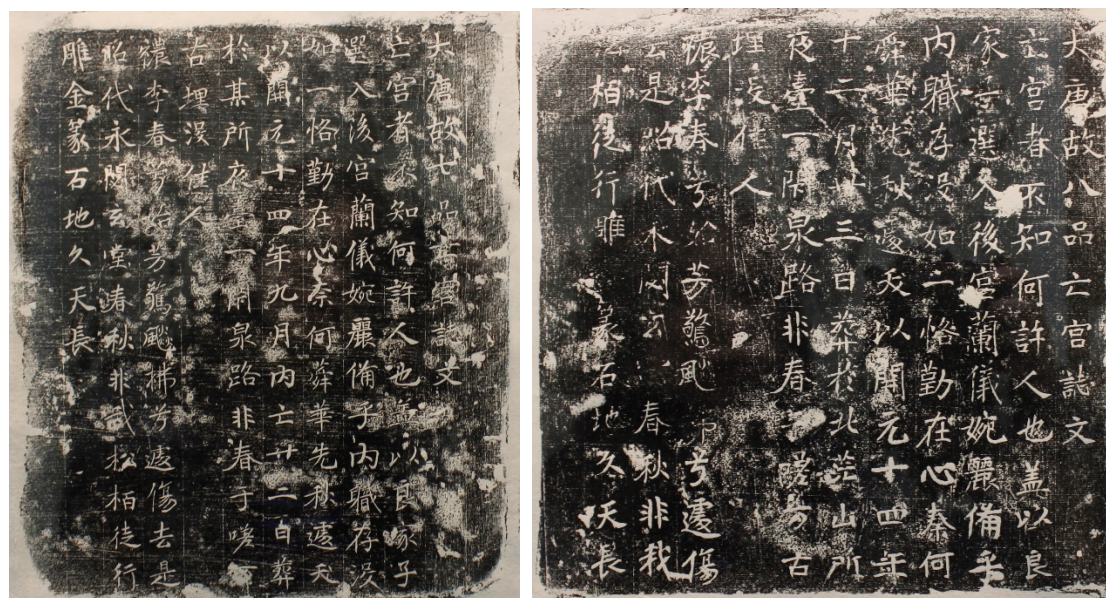 大唐故七品亡宮誌文
亡宮者不知何許人也盖以良家子
選入後宮蘭儀婉麗備乎內職存没
如一恪勤在心奈何蕣華先秋遽夭
以開元十四年九月內亡廿二日葬
於其所夜臺一閉泉路非春于嗟
古埋没佳人
穠李春兮始芳驚飈拂兮遽傷去是
昭代永閟玄堂春秋非我松栢徒行
雕金篆石地久天長
大唐故八品亡宮誌文
亡宮者不知何許人也盖以良
家子選入後宮蘭儀婉麗備乎
內職存没如一恪勤在心奈何
蕣華先秋遽夭以開元十四年
十二月廿三日葬於北茫山所
夜臺一閉泉路非春于嗟兮古
埋没佳人
穠李春兮始芳驚飈兮遽傷
去是昭代永閟春秋非我
栢徒行雕篆石地久天長